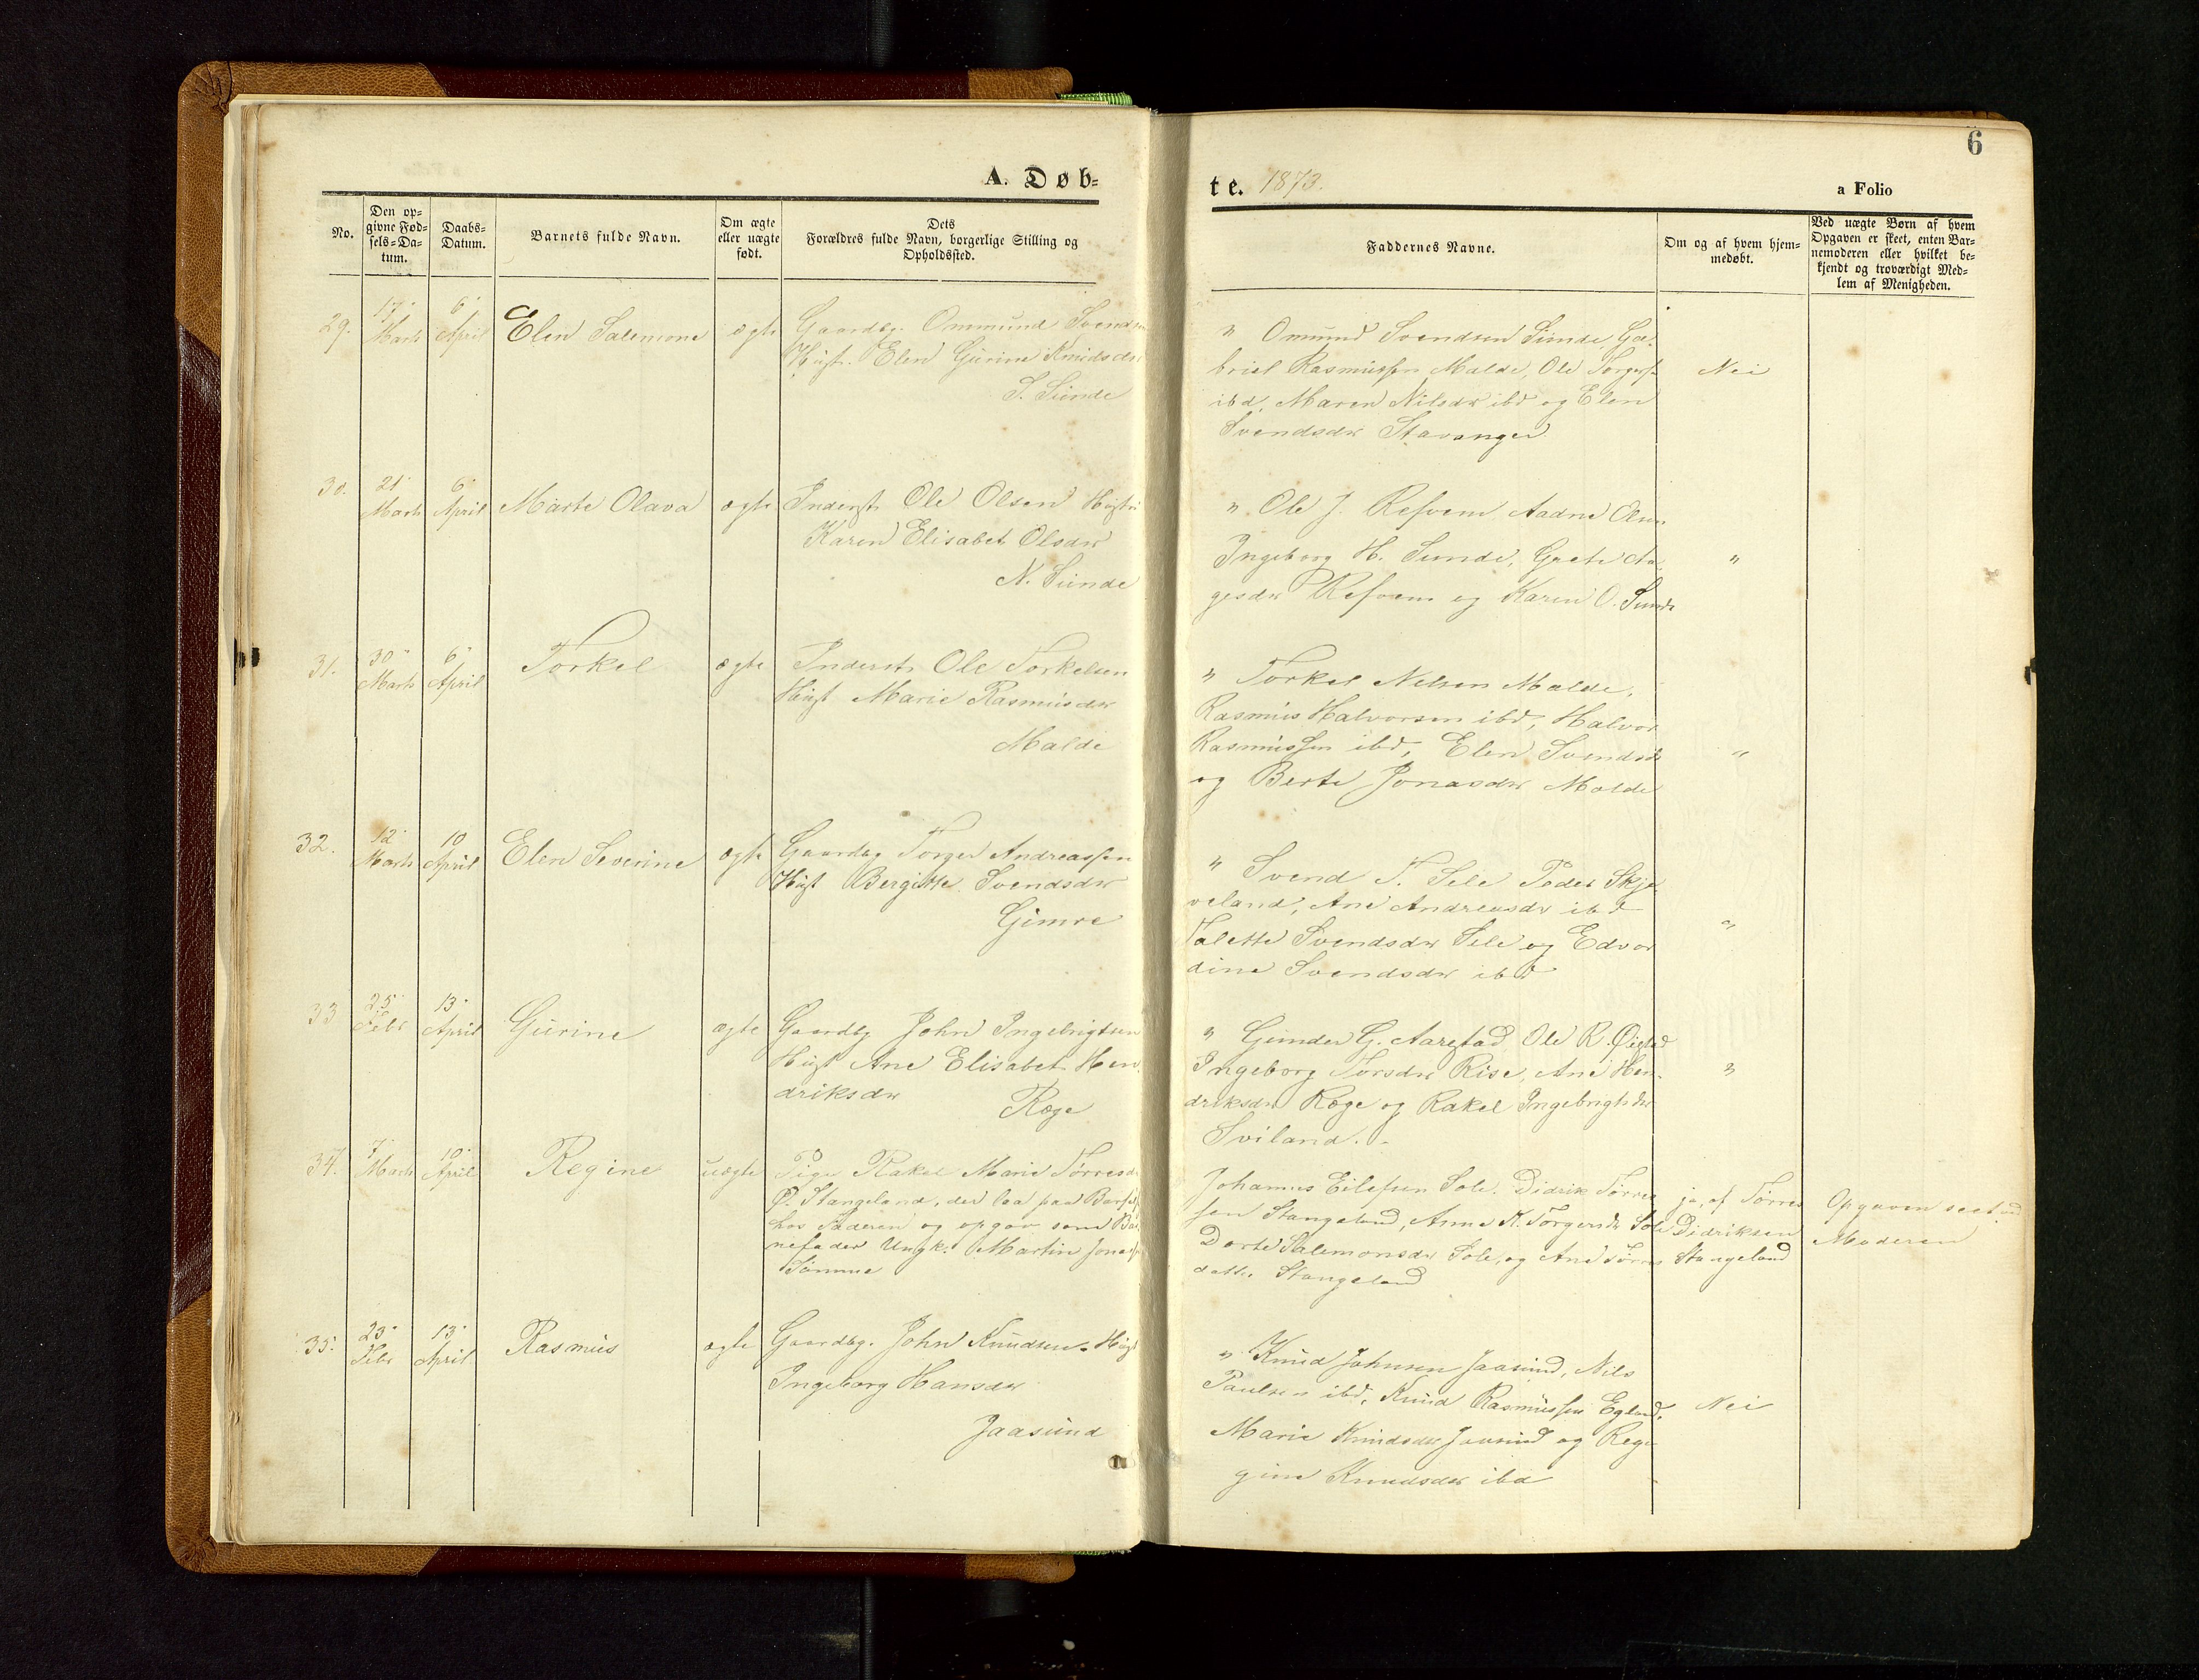 6
A. Døb=
te. 1873.
a Folio
No.
Den op=
givne Fød=
sels=Da=
tum.
Daabs=
Datum.
Barnets fulde Navn.
Om ægte
eller uægte
født.
Dets
Forældres fulde Navn, borgerlige Stilling og
Opholdssted.
Faddernes Navne.
Om og af hvem hjem=
medøbt.
Ved uægte Børn af hvem
Opgaven er skeet, enten Bar=
nemoderen eller hvilket be=
kjendt og troværdigt Med=
lem af Menigheden.
29.
17
Marts
6
April
Elen Salemone
ægte
Gaardbg. Ommund Svendsen
Hust. Elen Gurine Knudsdr
S. Sunde
" Omund Svendsen Sunde, Ga-
briel Rasmussen Malde, Ole Torgers.
ibd, Maren Nilsdr ibd og Elen
Svendsdr Stavanger
Nei
30.
21
Marts
6
April
Marte Olava
ægte
Inderst Ole Olsen Hustr
Karen Elisabet Olsdr
N. Sunde
" Ole J. Refvem, Aadne Olsen
Ingeborg H. Sunde, Grete Aa-
gesdr Refvem og Karen O. Sunde
"
31.
30
Marts
6
April
Torkel
ægte
Inderst Ole Torkelsen
Hust Marie Rasmusdr
Malde
" Torkel Nelsen Malde,
Rasmus Halvorsen ibd, Halvor
Rasmussen ibd, Elen Svendsdr
og Berte Jonasdr Malde
"
32.
12
Marts
10
April
Elen Severine
ægte
Gaardbg Torger Andreassen
Hust Bergitte Svendsdr
Gimre
" Svend T. Sele Peder Skje-
veland, Ane Andreasdr ibd
Talette Svendsdr Sele og Edvar
dine Svendsdr ibd
"
33
25
Febr
13
April
Gurine
ægte
Gaardbg John Ingebrigtsen
Hust Ane Elisabet Hen-
driksdr
Røge
" Gunder G. Aarstad, Ole R. Øigstad
Ingeborg Torsdr Rise, Ane Hen-
driksdr Røge og Rakel Ingebrigtsdr
Sviland.
"
34.
7
Marts
10
April
Regine
uægte
Pige Rakel Marie Tørresdr
Ø. Stangeland, der laa paa Barsel
hos Faderen og opgav som Bar
nefader Ungk. Martin Jonass
Sømme
Johannes Eilefsen Sole, Didrik Tørres
sen Stangeland, Anne K. Torgersdr Sole
Dorte Salemonsdr Sole, og Ane Tørres
datter Stangeland
ja, af Tørres
Didriksen
Stangeland
Opgaven skeet ved
Moderen
35.
23
Febr
13
April
Rasmus
ægte
Gaardbg. John Knudsen Hust
Ingeborg Hansdr
Jaasund
" Knud Johnsen Jaasund, Nils
Paulsen ibd, Knud Rasmussen Egland,
Marie Knudsdr Jaasund og Re-
gine Knudsdr ibd
Nei